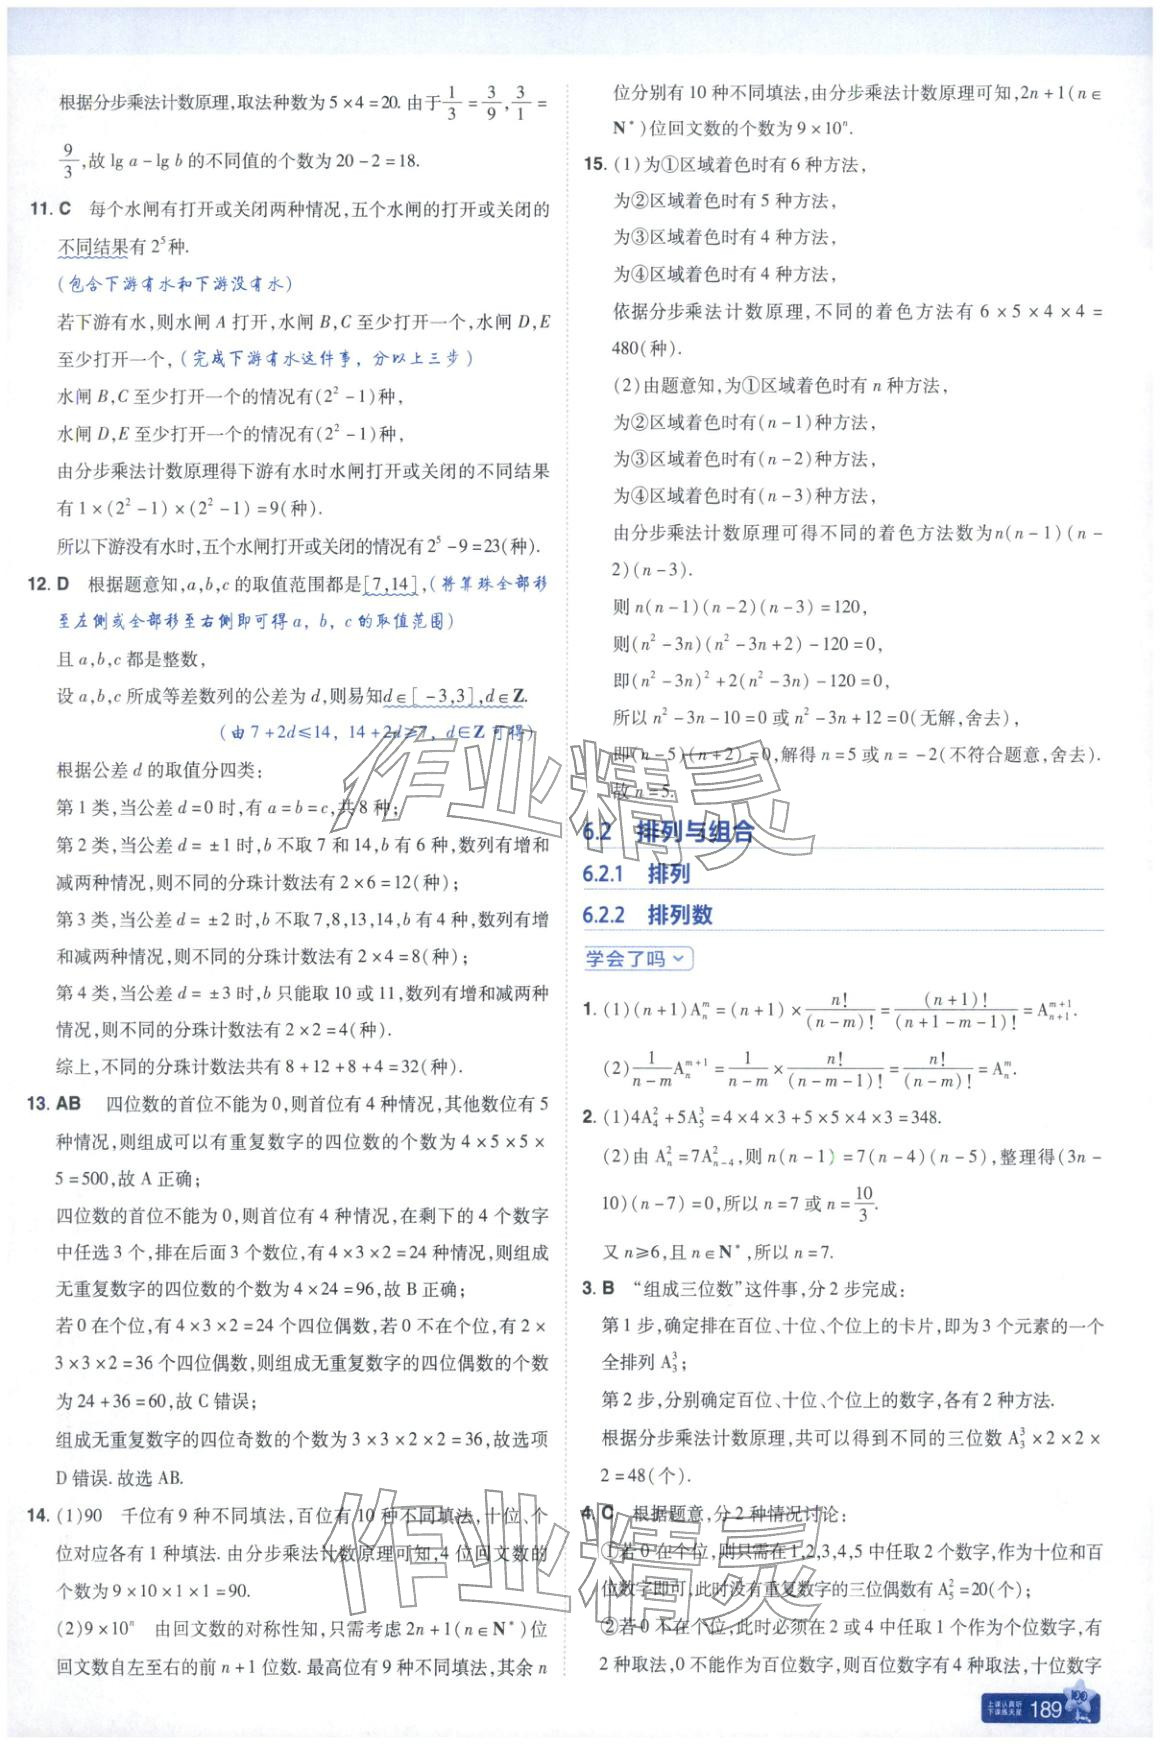 根据分步乘法计数原理,取法种数为 5×4=20. 由于 1/3 = 3/9, 3/1 =
9/3, 故 lg a-lg b 的不同值的个数为 20-2=18.
11. C 每个水闸有打开或关闭两种情况,五个水闸的打开或关闭的
不同结果有 2^5 种.
(包含下游有水和下游没有水)
若下游有水,则水闸 A 打开,水闸 B,C 至少打开一个,水闸 D,E
至少打开一个,(完成下游有水这件事,分以上三步)
水闸 B,C 至少打开一个的情况有(2^2-1)种,
水闸 D,E 至少打开一个的情况有(2^2-1)种,
由分步乘法计数原理得下游有水时水闸打开或关闭的不同结果
有 1×(2^2-1)×(2^2-1)=9(种).
所以下游没有水时,五个水闸打开或关闭的情况有 2^5-9=23(种).
12. D 根据题意知,a,b,c 的取值范围都是[7,14],(将算珠全部移
至左侧或全部移至右侧即可得 a, b, c 的取值范围)
且 a,b,c 都是整数,
设 a,b,c 所成等差数列的公差为 d,则易知 d∈[-3,3],d∈Z.
(由 7+2d≤14, 14+2d≥7, d∈Z 可得)
根据公差 d 的取值分四类:
第 1 类,当公差 d=0 时,有 a=b=c,共 8 种;
第 2 类,当公差 d=±1 时,b 不取 7 和 14,b 有 6 种,数列有增和
减两种情况,则不同的分珠计数法有 2×6=12(种);
第 3 类,当公差 d=±2 时,b 不取 7,8,13,14,b 有 4 种,数列有增
和减两种情况,则不同的分珠计数法有 2×4=8(种);
第 4 类,当公差 d=±3 时,b 只能取 10 或 11,数列有增和减两种
情况,则不同的分珠计数法有 2×2=4(种).
综上,不同的分珠计数法共有 8+12+8+4=32(种).
13. AB 四位数的首位不能为 0,则首位有 4 种情况,其他数位有 5
种情况,则组成可以有重复数字的四位数的个数为 4×5×5×
5=500,故 A 正确;
四位数的首位不能为 0,则首位有 4 种情况,在剩下的 4 个数字
中任选 3 个,排在后面 3 个数位,有 4×3×2=24 种情况,则组成
无重复数字的四位数的个数为 4×24=96,故 B 正确;
若 0 在个位,有 4×3×2=24 个四位偶数,若 0 不在个位,有 2×
3×3×2=36 个四位偶数,则组成无重复数字的四位偶数的个数
为 24+36=60,故 C 错误;
组成无重复数字的四位奇数的个数为 3×3×2×2=36,故选项
D 错误.故选 AB.
14. (1)90 千位有 9 种不同填法,百位有 10 种不同填法,十位、个
位对应各有 1 种填法. 由分步乘法计数原理可知,4 位回文数的
个数为 9×10×1×1=90.
(2)9×10^n 由回文数的对称性知,只需考虑 2n+1(n∈N*)位
回文数自左至右的前 n+1 位数. 最高位有 9 种不同填法,其余 n
位分别有 10 种不同填法,由分步乘法计数原理可知,2n+1(n∈
N*)位回文数的个数为 9×10^n.
15. (1)为①区域着色时有 6 种方法,
为②区域着色时有 5 种方法,
为③区域着色时有 4 种方法,
为④区域着色时有 4 种方法,
依据分步乘法计数原理,不同的着色方法有 6×5×4×4=
480(种).
(2)由题意知,为①区域着色时有 n 种方法,
为②区域着色时有(n-1)种方法,
为③区域着色时有(n-2)种方法,
为④区域着色时有(n-3)种方法,
由分步乘法计数原理可得不同的着色方法数为n(n-1)(n-
2)(n-3).
则 n(n-1)(n-2)(n-3)=120,
则(n^2-3n)(n^2-3n+2)-120=0,
即(n^2-3n)^2+2(n^2-3n)-120=0,
所以 n^2-3n-10=0 或 n^2-3n+12=0(无解,舍去),
即(n-5)(n+2)=0,解得 n=5 或 n=-2(不符合题意,舍去).
故 n=5.
6.2 排列与组合
6.2.1 排列
6.2.2 排列数
学会了吗
1. (1)(n+1)A_n^m=(n+1)× n!/(n-m)! = (n+1)!/(n+1-m-1)! = A_{n+1}^{m+1}.
(2) 1/(n-m) A_n^{m+1} = 1/(n-m) × n!/(n-m-1)! = n!/(n-m)! = A_n^m.
2. (1)4A_4^2+5A_5^3=4×4×3+5×5×4×3=348.
(2)由 A_n^2=7A_{n-4}^2,则 n(n-1)=7(n-4)(n-5),整理得(3n-
10)(n-7)=0,所以 n=7 或 n=10/3.
又 n≥6,且 n∈N*,所以 n=7.
3. B “组成三位数”这件事,分 2 步完成:
第 1 步,确定排在百位、十位、个位上的卡片,即为 3 个元素的一个
全排列 A_3^3;
第 2 步,分别确定百位、十位、个位上的数字,各有 2 种方法.
根据分步乘法计数原理,共可以得到不同的三位数 A_3^3×2×2×
2=48(个).
4. C 根据题意,分 2 种情况讨论:
①若 0 在个位,则只需在 1,2,3,4,5 中任取 2 个数字,作为十位和百
位数字即可,此时没有重复数字的三位偶数有 A_5^2=20(个);
②若 0 不在个位,此时必须在 2 或 4 中任取 1 个作为个位数字,有
2 种取法,0 不能作为百位数字,则百位数字有 4 种取法,十位数字
上课认真听
下课练天星
189
作业精灵
作业精灵